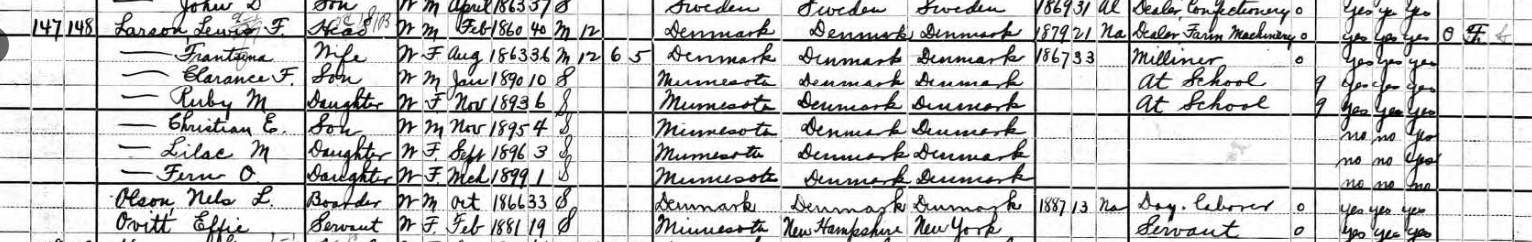 John D Son W M April 1863 37 S Sweden Sweden Sweden 1869 31 Al Dealer, Confectionery 0 yes ye yes
147 148 Larson Lewis F. Head W M Feb 1860 40 M 12 Denmark Denmark Denmark 1879 21 Na Dealer Farm Machinery 0 yes yes yes O F
— Wife W F Aug 1863 36 M 12 6 5 Denmark Denmark Denmark 1867 33 Milliner 0 yes yes yes
— Clarance F. Son W M Jan 1890 10 S Minnesota Denmark Denmark At School 9 yes yes yes
— Ruby M Daughter W F Nov 1893 6 S Minnesota Denmark Denmark At School 9 yes yes yes
— Christian E. Son W M Nov 1895 4 S Minnesota Denmark Denmark no no yes
— Lilac M Daughter W F. Sept 1896 3 S Minnesota Denmark Denmark no no yes
— Fern O Daughter W F. Mch 1899 1 S Minnesota Denmark Denmark no no no
Olson Nels L. Boarder W M Oct 1866 33 S Denmark Denmark Denmark 1887 13 Na Day-laborer 0 yes yes yes
Ovitt Effie Servant W F. Feb 1881 19 S Minnesota New Hampshire New York Servant 0 yes yes yes